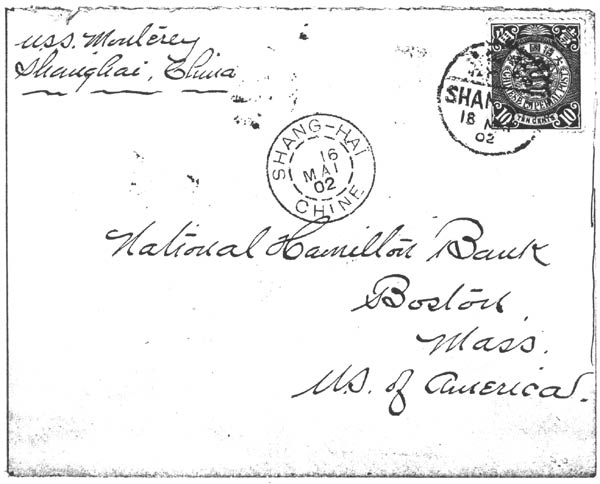 USS. Monterey
Shanghai, China
SHANG-HAÏ
16
MAI
02
CHINE
SHAN
18
02
大清國郵政
CHINESE IMPERIAL POST
10
TEN CENTS
10
National Hamilton Bank
Boston
Mass.
U.S. of America.